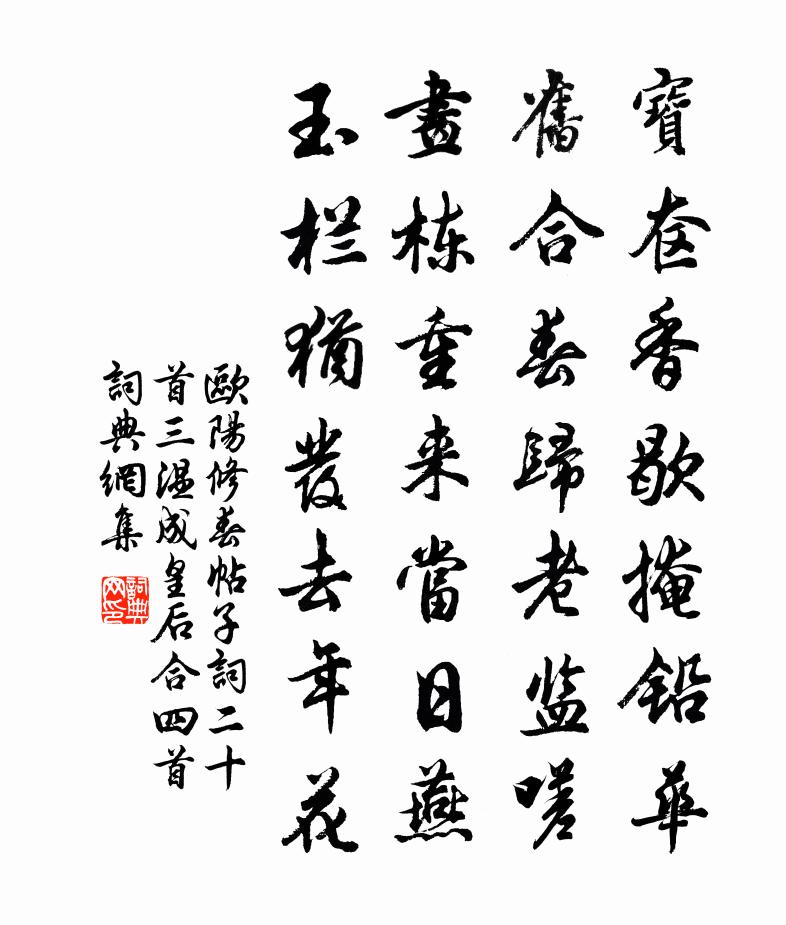 寶奁香歇掩鉛華
舊合春歸老监嗟
畫栋重来當日燕
玉栏猶發去年花
歐陽修春帖子詞二十
首三温成皇后合四首
詞典網集
詞典网印